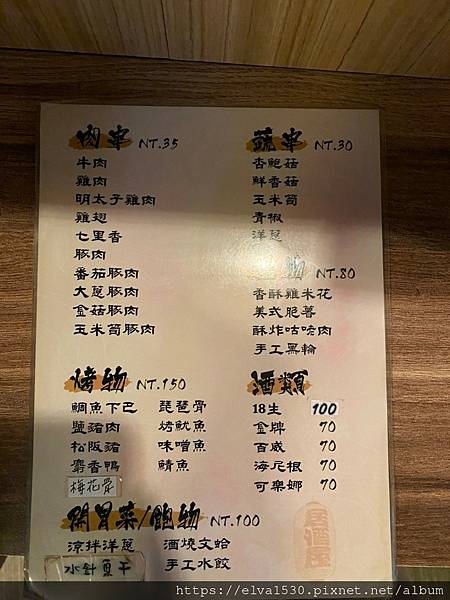 肉串 NT.35
牛肉
雞肉
明太子雞肉
雞翅
七里香
豚肉
番茄豚肉
大蔥豚肉
金菇豚肉
玉米筍豚肉
蔬串 NT.30
杏鮑菇
鮮香菇
玉米筍
青椒
洋蔥
物 NT.80
香酥雞米花
美式脆薯
酥炸咕咾肉
手工黑輪
烤物 NT.150
鯛魚下巴 琵琶骨
鹽豬肉 烤魷魚
松阪豬 味噌魚
麝香鴨 鯖魚
梅花骨
酒類
18生 100
金牌 70
百威 70
海尼根 70
可樂娜 70
開胃菜/鍋物 NT.100
涼拌洋蔥 酒燒文蛤
水針魚干 手工水餃
居酒屋
https://elva1530.pixnet.net/album